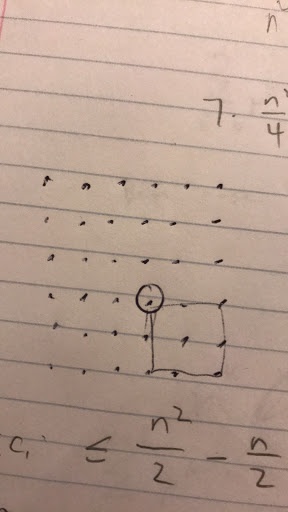 n
7. n²/4
c, ≤ n²/2 - n/2